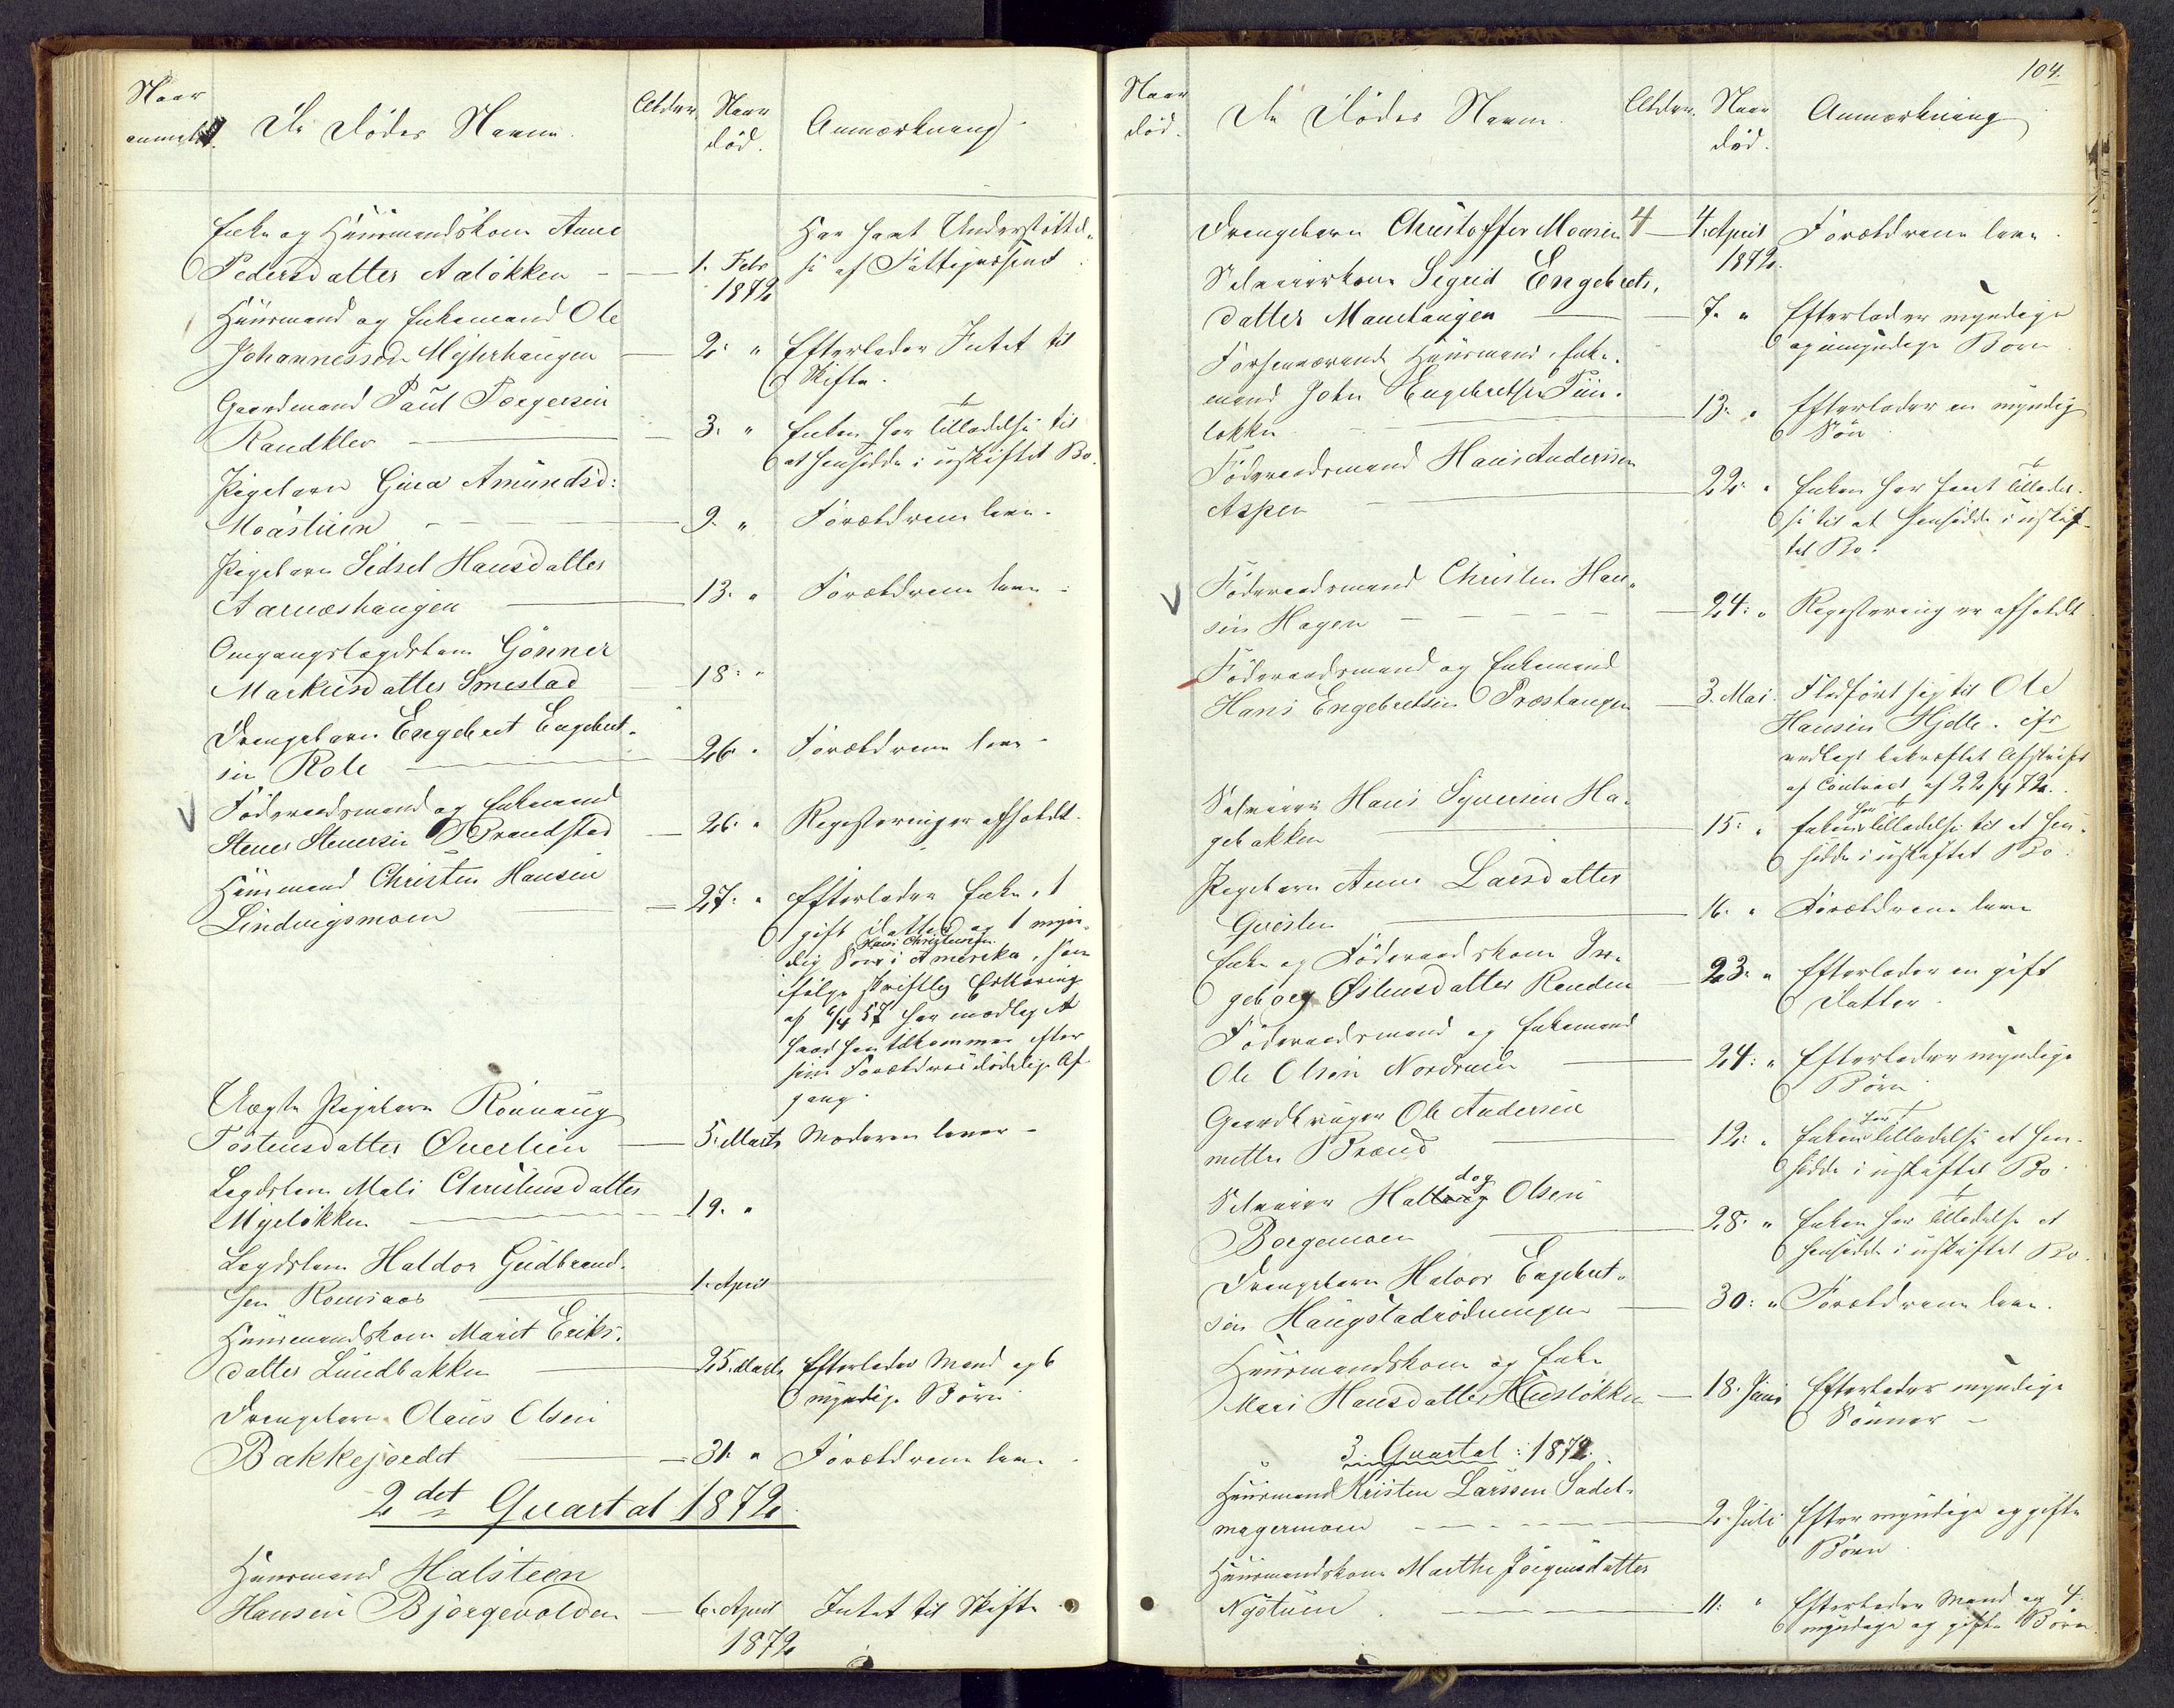 Naar anmeldt. De Dødes Navne. Alder. Naar død. Anmærkning
Enke og Huusmandskone Anne
Pedersdatter Aaløkken — 1. Febr 1872 Har havt Understøttel-
se af Fattigvæsenet.
Huusmand og Enkemand Ole
Johannessen Myhrhaugen — 2. " Efterlader Intet til
Skifte.
Gaardmand Paul Torgersen
Randklev — 3. " Enken har Tilladelse til
at hensidde i uskiftet Bo.
Pigebarn Gura Amundsd:
Moastuen — 9. " Forældrene leve.
Pigebarn Sidsel Hansdatter
Aarneshaugen — 13. " Forældrene leve.
Omgangslægdslem Gønner
Markusdatter Smestad — 18. "
Drengebarn Engebret Engebret-
sen Kole — 26. " Forældrene leve.
V Føderaadsmand og Enkemand
Stener Stenersen Brandstad — 26. " Registrering er afholdt.
Huusmand Christen Hansen
Lindvigsmoen — 27. " Efterlader Enke, 1
gift Datter og 1 myn-
Hans Christensen
dig Søn i Amerika, som
ifølge skriftlig Erklæring
af 6/4 57 har modtaget
hvad ham tilkommer efter
sine Forældres dødelige Af-
gang.
Uægte Pigebarn Rønnaug
Tostensdatter Øverlien — 5. Marts Moderen lever —
Lægdslem Mali Christensdatter
Myeløkken — 19. "
Lægdslem Haldor Gudbrand-
sen Romsaas — 1. April
Huusmandskone Marit Eriks-
datter Lundbakken — 25. Marts Efterlader Mand og 6
myndige Børn.
Drengebarn Olaus Olsen
Bakkejordet — 31. " Forældrene leve.
2det Quartal 1872.
Huusmand Halsteen
Hansen Bjørgevolden — 6. April 1872 Intet til Skifte.
104.
Naar død. De Dødes Navne. Alder. Naar død. Anmærkning
Drengebarn Christoffer Moen 4 — 4. April 1872. Forældrene leve.
Selveierkone Sigrid Engebrets-
datter Maurhaugen — 7. " Efterlader myndige
og umyndige Børn
Forhenværende Huusmand, Enke-
mand John Engebretsen Tune-
løkken — 13. " Efterlader en myndig
Søn
Føderaadsmand Hans Andersen
Aspen — 22. " Enken har havt Tilladel-
se til at hensidde i uskif-
tet Bo.
V Føderaadsmand Christen Han-
sen Hagen — 24. " Registrering er afholdt
Føderaadsmand og Enkemand
Hans Engebretsen Præsthaugen — 3. Mai. Fledført sig til Ole
Hansen Hjelle. cfr
vedlagt bekræftet Afskrift
af Contract af 22/4 72.
Selveier Hans Syversen Ha-
gebakken — 15. " Enken har Tilladelse til at hen-
sidde i uskiftet Bo.
Pigebarn Anne Larsdatter
Qvesten — 16. " Forældrene leve
Enke og Føderaadskone In-
geborg Østensdatter Randen — 23. " Efterlader en gift
Datter.
Føderaadsmand og Enkemand
Ole Olsen Nordrum — 24. " Efterlader myndige
Børn
Gaardbruger Ole Andersen
mellem Brænd — 12. " Enken har Tilladelse at hen-
sidde i uskiftet Bo.
dog
Selveier Halvag Olsen
Borgemoen — 28. " Enken har Tilladelse at
hensidde i uskiftet Bo.
Drengebarn Halvor Engebret-
sen Haugstadrødningen — 30. " Forældrene leve.
Huusmandskone og Enke
Mari Hansdatter Kusløkken — 18. Juni Efterlader myndige
Sønner —
3. Quartal: 1872.
Huusmand Kristen Larssen Sadel-
magermoen — 2. Juli Efter myndige og gifte
Børn
Huusmandskone Marthe Jørgensdatter
Nystuen — 11. " Efterlader Mand og 4
myndige og gifte Børn